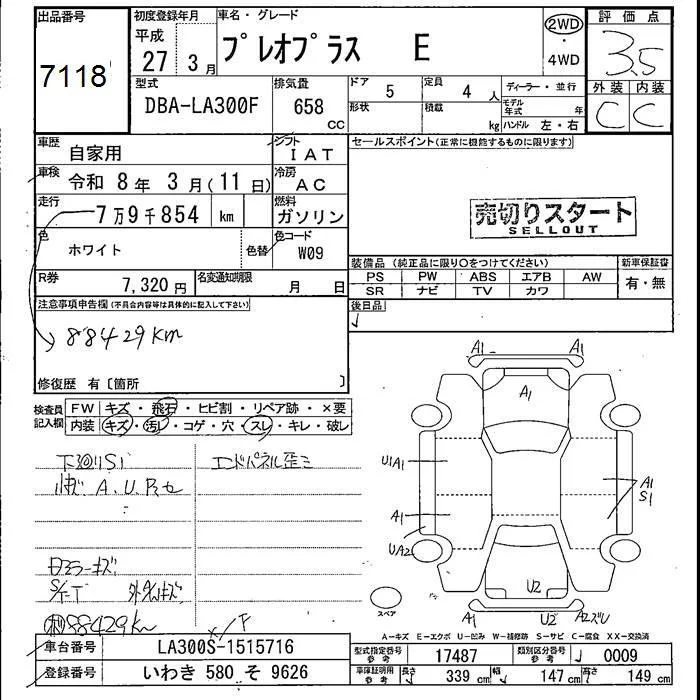 出品番号
7118
初度登録年月
平成
27年 3月
車名・グレード
プレオプラス E
2WD
・
4WD
評価点
3.5
外装 内装
C C
型式
DBA-LA300F
排気量
658
CC
ドア
5
形状
定員
4人
積載
kg
ディーラー・並行
モデル年式 年
ハンドル 左・右
車歴
自家用
シフト
IAT
車検
令和 8年 3月(11日)
冷房
AC
走行
7万9千854 km
燃料
ガソリン
色
ホワイト
色替
色コード
W09
R券
7,320円
名変通知期限
月 日
セールスポイント(正常に機能するものに限ります)
売切りスタート
SELLOUT
装備品(純正品に限り〇をつけてください)
新車保証書
PS PW ABS エアB AW
SR ナビ TV カワ
有・無
後日品
注意事項申告欄(不具合内容等は具体的に記入して下さい)
88429km
修復歴 有〔箇所 〕
検査員
記入欄
FW キズ・飛石・ヒビ割・リペア跡・×要
内装 キズ・汚れ・コゲ・穴・スレ・キレ・破レ
下廻りS1
エンドパネル歪ミ
A、U、P、セ
ミラーキズ
88429km
A1 A1
A1
U1A1
A1
UA2
A1
S1
U2
A1 U2 A2ズU
スペア
A-キズ E-エクボ U-凹み W-補修跡 S-サビ C-腐食 XX-交換済
車台番号
LA300S-1515716
F
登録番号
いわき 580 そ 9626
型式指定番号
参考
17487
類別区分番号
参考
0009
車庫証明用
参考
長さ 339 cm
幅 147 cm
高さ 149 cm